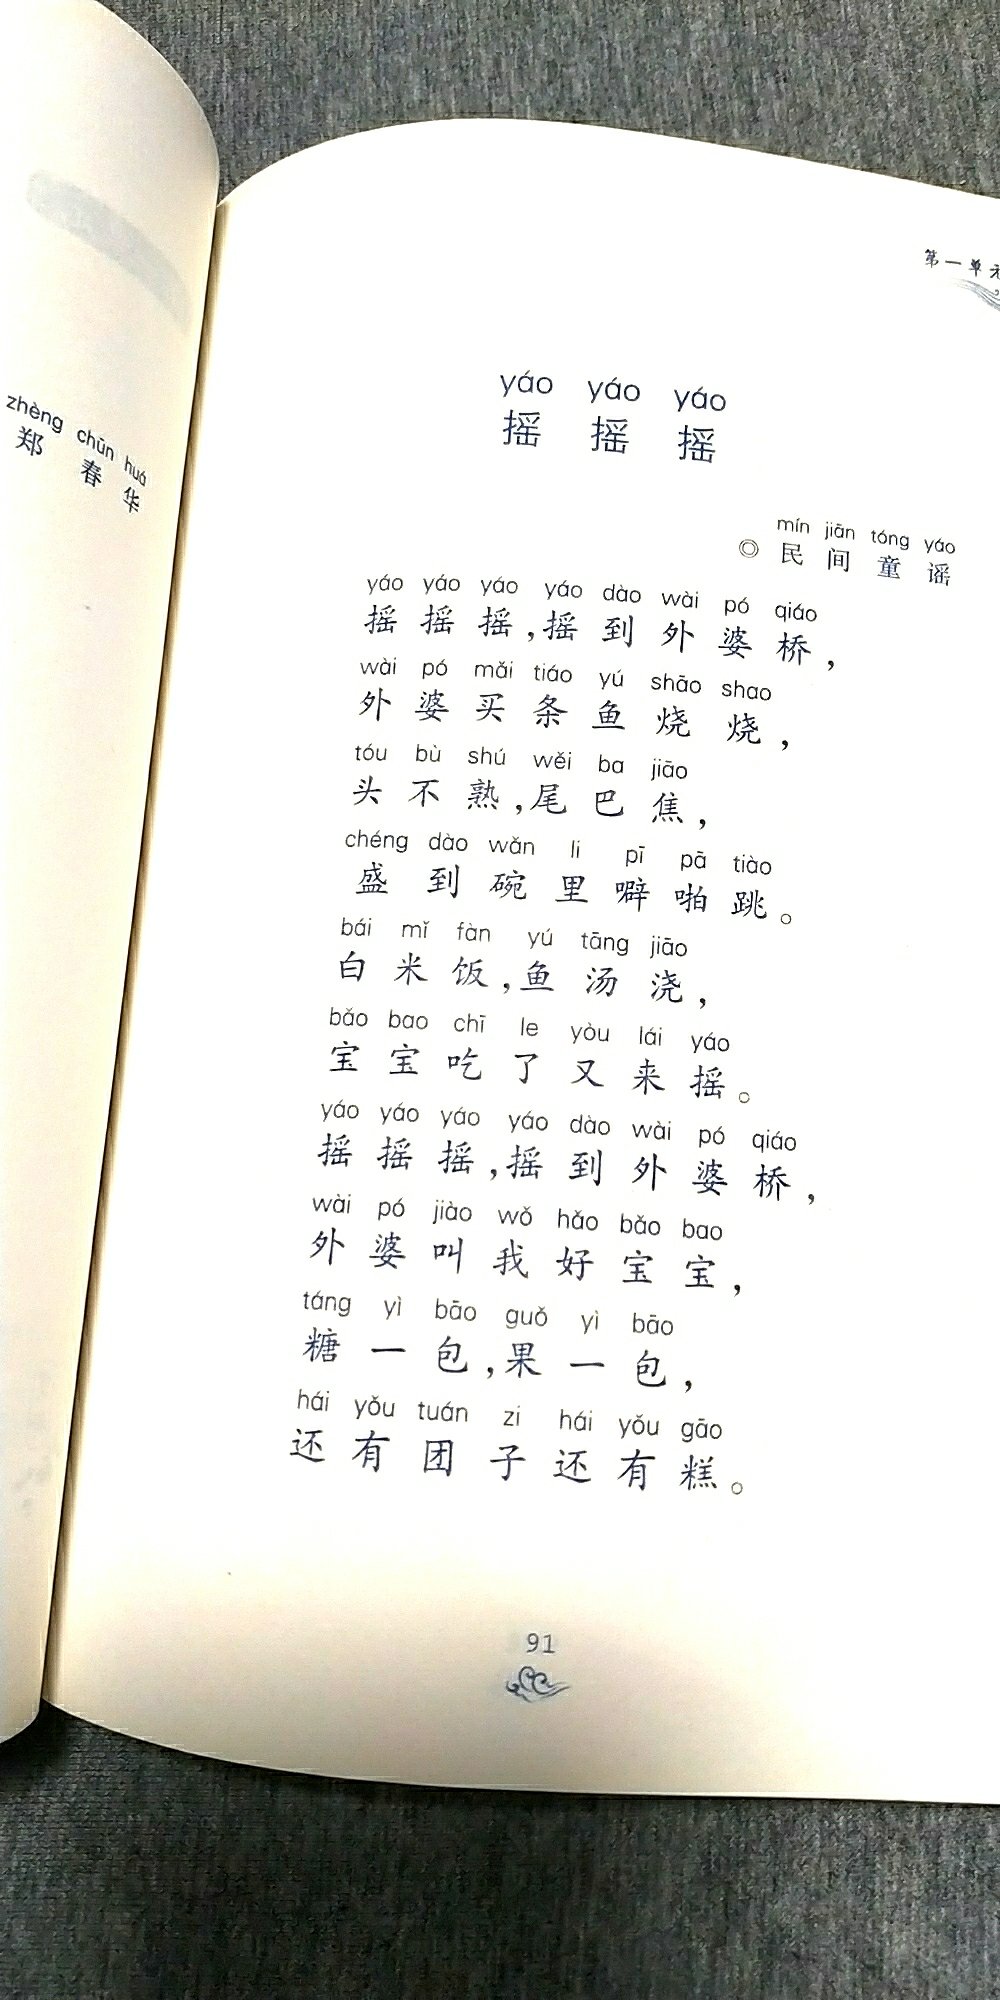 zhèng chūn huá
郑春华
第一单元
yáo yáo yáo
摇摇摇
mín jiān tóng yáo
◎民间童谣
yáo yáo yáo yáo dào wài pó qiáo
摇摇摇,摇到外婆桥,
wài pó mǎi tiáo yú shāo shao
外婆买条鱼烧烧,
tóu bù shú wěi ba jiāo
头不熟,尾巴焦,
chéng dào wǎn li pī pā tiào
盛到碗里噼啪跳。
bái mǐ fàn yú tāng jiāo
白米饭,鱼汤浇,
bǎo bao chī le yòu lái yáo
宝宝吃了又来摇。
yáo yáo yáo yáo dào wài pó qiáo
摇摇摇,摇到外婆桥,
wài pó jiào wǒ hǎo bǎo bao
外婆叫我好宝宝,
táng yì bāo guǒ yì bāo
糖一包,果一包,
hái yǒu tuán zi hái yǒu gāo
还有团子还有糕。
91